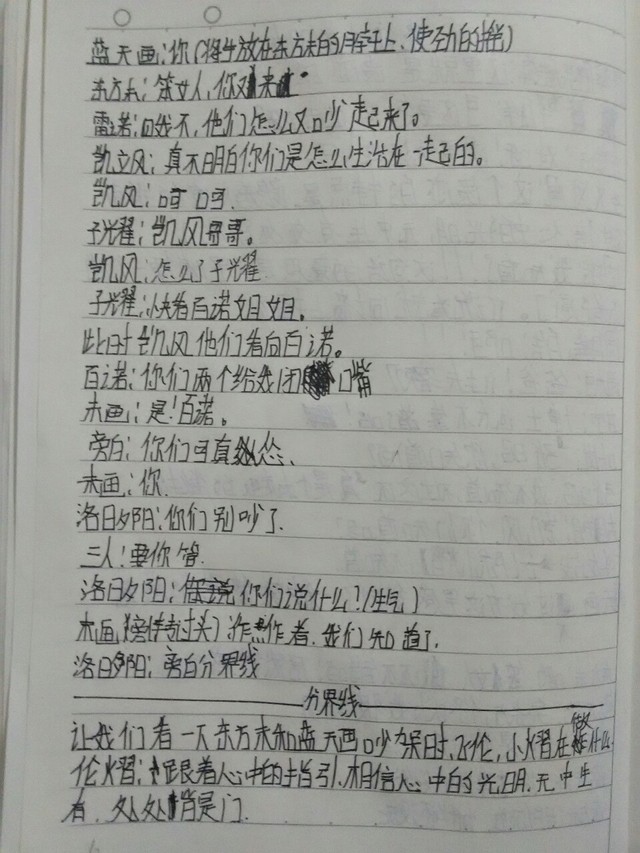 蓝天画：你（将手放在东方末的肩上、使劲的摇）
东方末：笨女人，你又来
雷诺：哦不，他们怎么又吵走起来了。
凯立风：真不明白你们是怎么生活在一走起的。
凯风：呵呵.
子光耀：凯风哥哥。
凯风：怎么了子光耀
子光耀：快看百诺姐姐。
此时凯风他们看向百诺。
百诺：你们两个给我闭嘴
末画：是！百诺。
旁白：你们可真怂、
末画：你.
洛日夕阳：你们别吵了.
三人：要你管.
洛日夕阳：你们说什么？（生气）
末画（旁转过头）作者.我们知道了.
洛日夕阳：旁白分界线
分界线
让我们看一下东方末和蓝天画吵架时，飞伦，小熠在做什么.
伦熠：跟着心中的指引.相信心中的光明.无中生
有.处处皆是门.